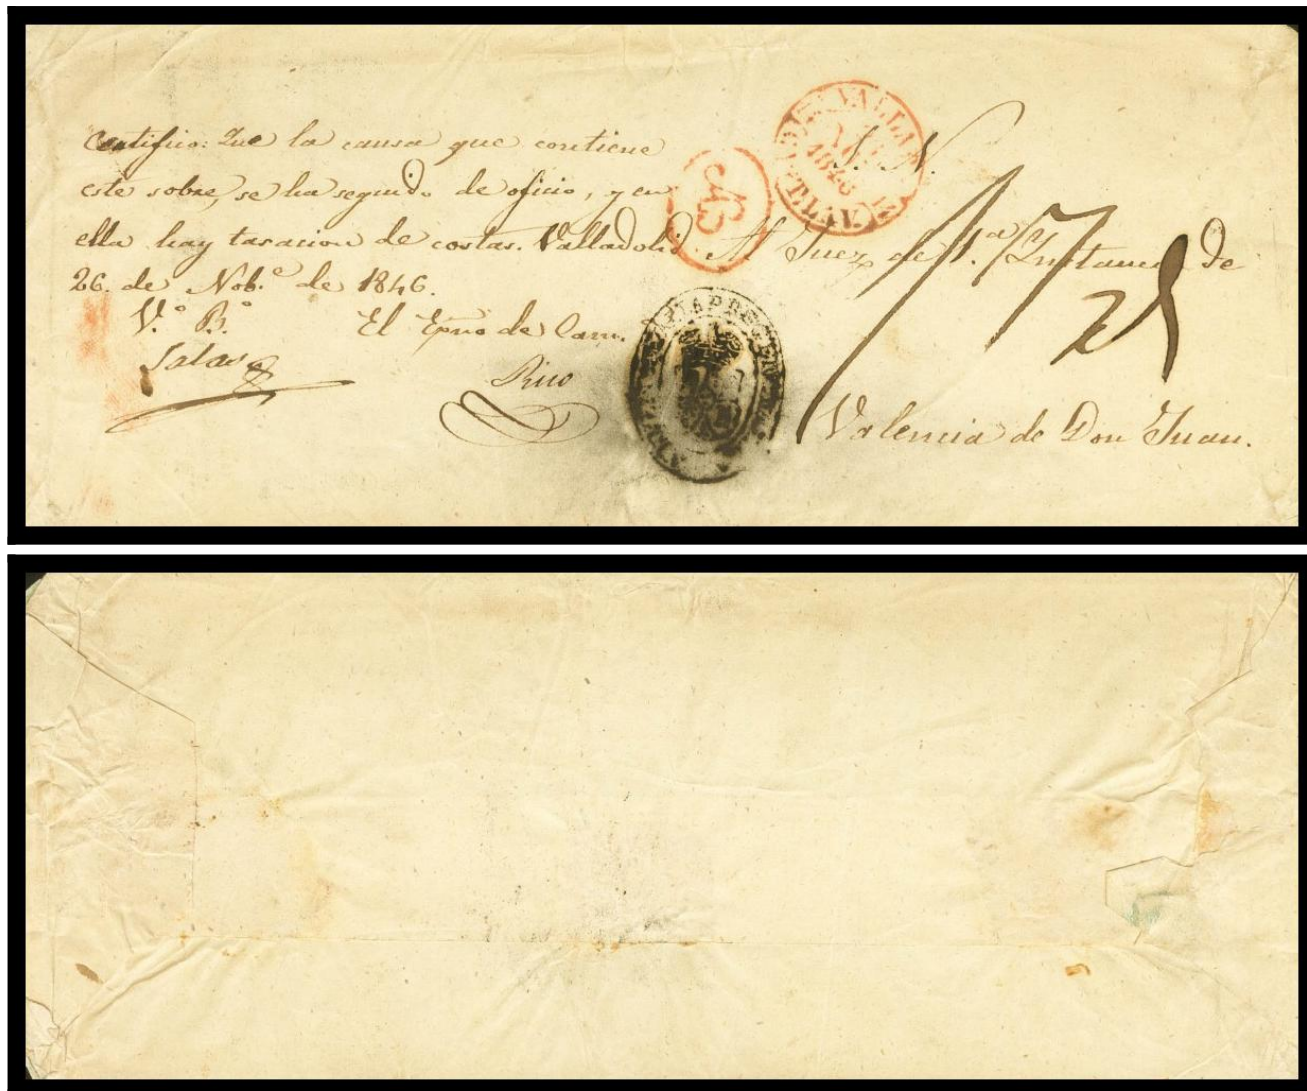 Certifico: Que la causa que contiene
este sobre, se ha seguido de oficio, y en
ella hay tasacion de costas. Valladolid
26. de Nob.e de 1846.
V.o B.o
El de Cam.
Salas
Rico
S. N.
Al Juez de 1.a Instancia de
Valencia de Don Juan.
1846